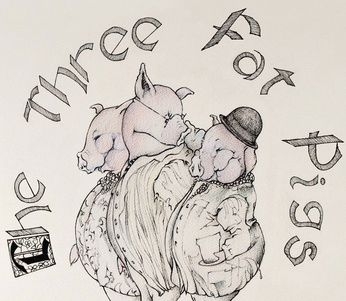 The Three Fat Pigs